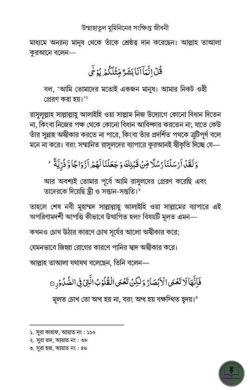 উম্মাহাতুল মুমিনিনের সংক্ষিপ্ত জীবনী
মাধ্যমে অন্যান্য মানুষ থেকে তাঁকে শ্রেষ্ঠত্ব দান করেছেন। আল্লাহ তাআলা
কুরআনে বলেন—
قُلْ اِنَّمَاۤ اَنَا بَشَرٌ مِّثْلُكُمْ يُوْحٰۤى
বল, 'আমি তোমাদের মতোই একজন মানুষ। আমার নিকট ওহী
প্রেরণ করা হয়।'১
রাসুলুল্লাহ সাল্লাল্লাহু আলাইহি ওয়া সাল্লাম নিজ উদ্যোগে কোনো বিধান দিতেন
না, কিংবা নিজের পক্ষ থেকে কোনো বিধান আবিষ্কার করতেন না; যাতে কেউ
তাঁর সুন্নাহ অস্বীকার করতে না পারে, কিংবা তাঁর প্রদর্শিত পথকে ত্রুটিপূর্ণ বলে
মনে না করে। বরং সম্মানিত রাসুলদের ব্যাপারে কুরআনই স্বীকৃতি দিচ্ছে যে—
وَلَقَدْ اَرْسَلْنَا رُسُلًا مِّنْ قَبْلِكَ وَجَعَلْنَا لَهُمْ اَزْوَاجًا وَّذُرِّيَّةً
আর অবশ্যই তোমার পূর্বে আমি রাসুলদের প্রেরণ করেছি এবং
তাদেরকে দিয়েছি স্ত্রী ও সন্তান-সন্ততি।২
তাহলে শেষ নবী মুহাম্মদ সাল্লাল্লাহু আলাইহি ওয়া সাল্লামের ব্যাপারে এই
অপরিণামদর্শী আপত্তি কীভাবে উত্থাপিত হল? বিষয়টি মূলত এমন—
কখনও চোখ উঠার কারণে চোখ সূর্যের আলো অস্বীকার করে;
যেমনভাবে জিহ্বা রোগের কারণে পানির স্বাদ অস্বীকার করে।
আল্লাহ তাআলা যথাযথ বলেছেন, তিনি বলেন—
فَاِنَّهَا لَا تَعْمَى الْاَبْصَارُ وَلٰكِنْ تَعْمَى الْقُلُوْبُ الَّتِيْ فِي الصُّدُوْرِ
মূলত চোখ তো অন্ধ হয় না, বরং অন্ধ হয় বক্ষস্থিত হৃদয়।৩
১. সুরা কাহাফ, আয়াত নং : ১১০
২. সুরা রাদ, আয়াত নং : ৩৮
৩. সুরা হজ, আয়াত নং : ৪৬